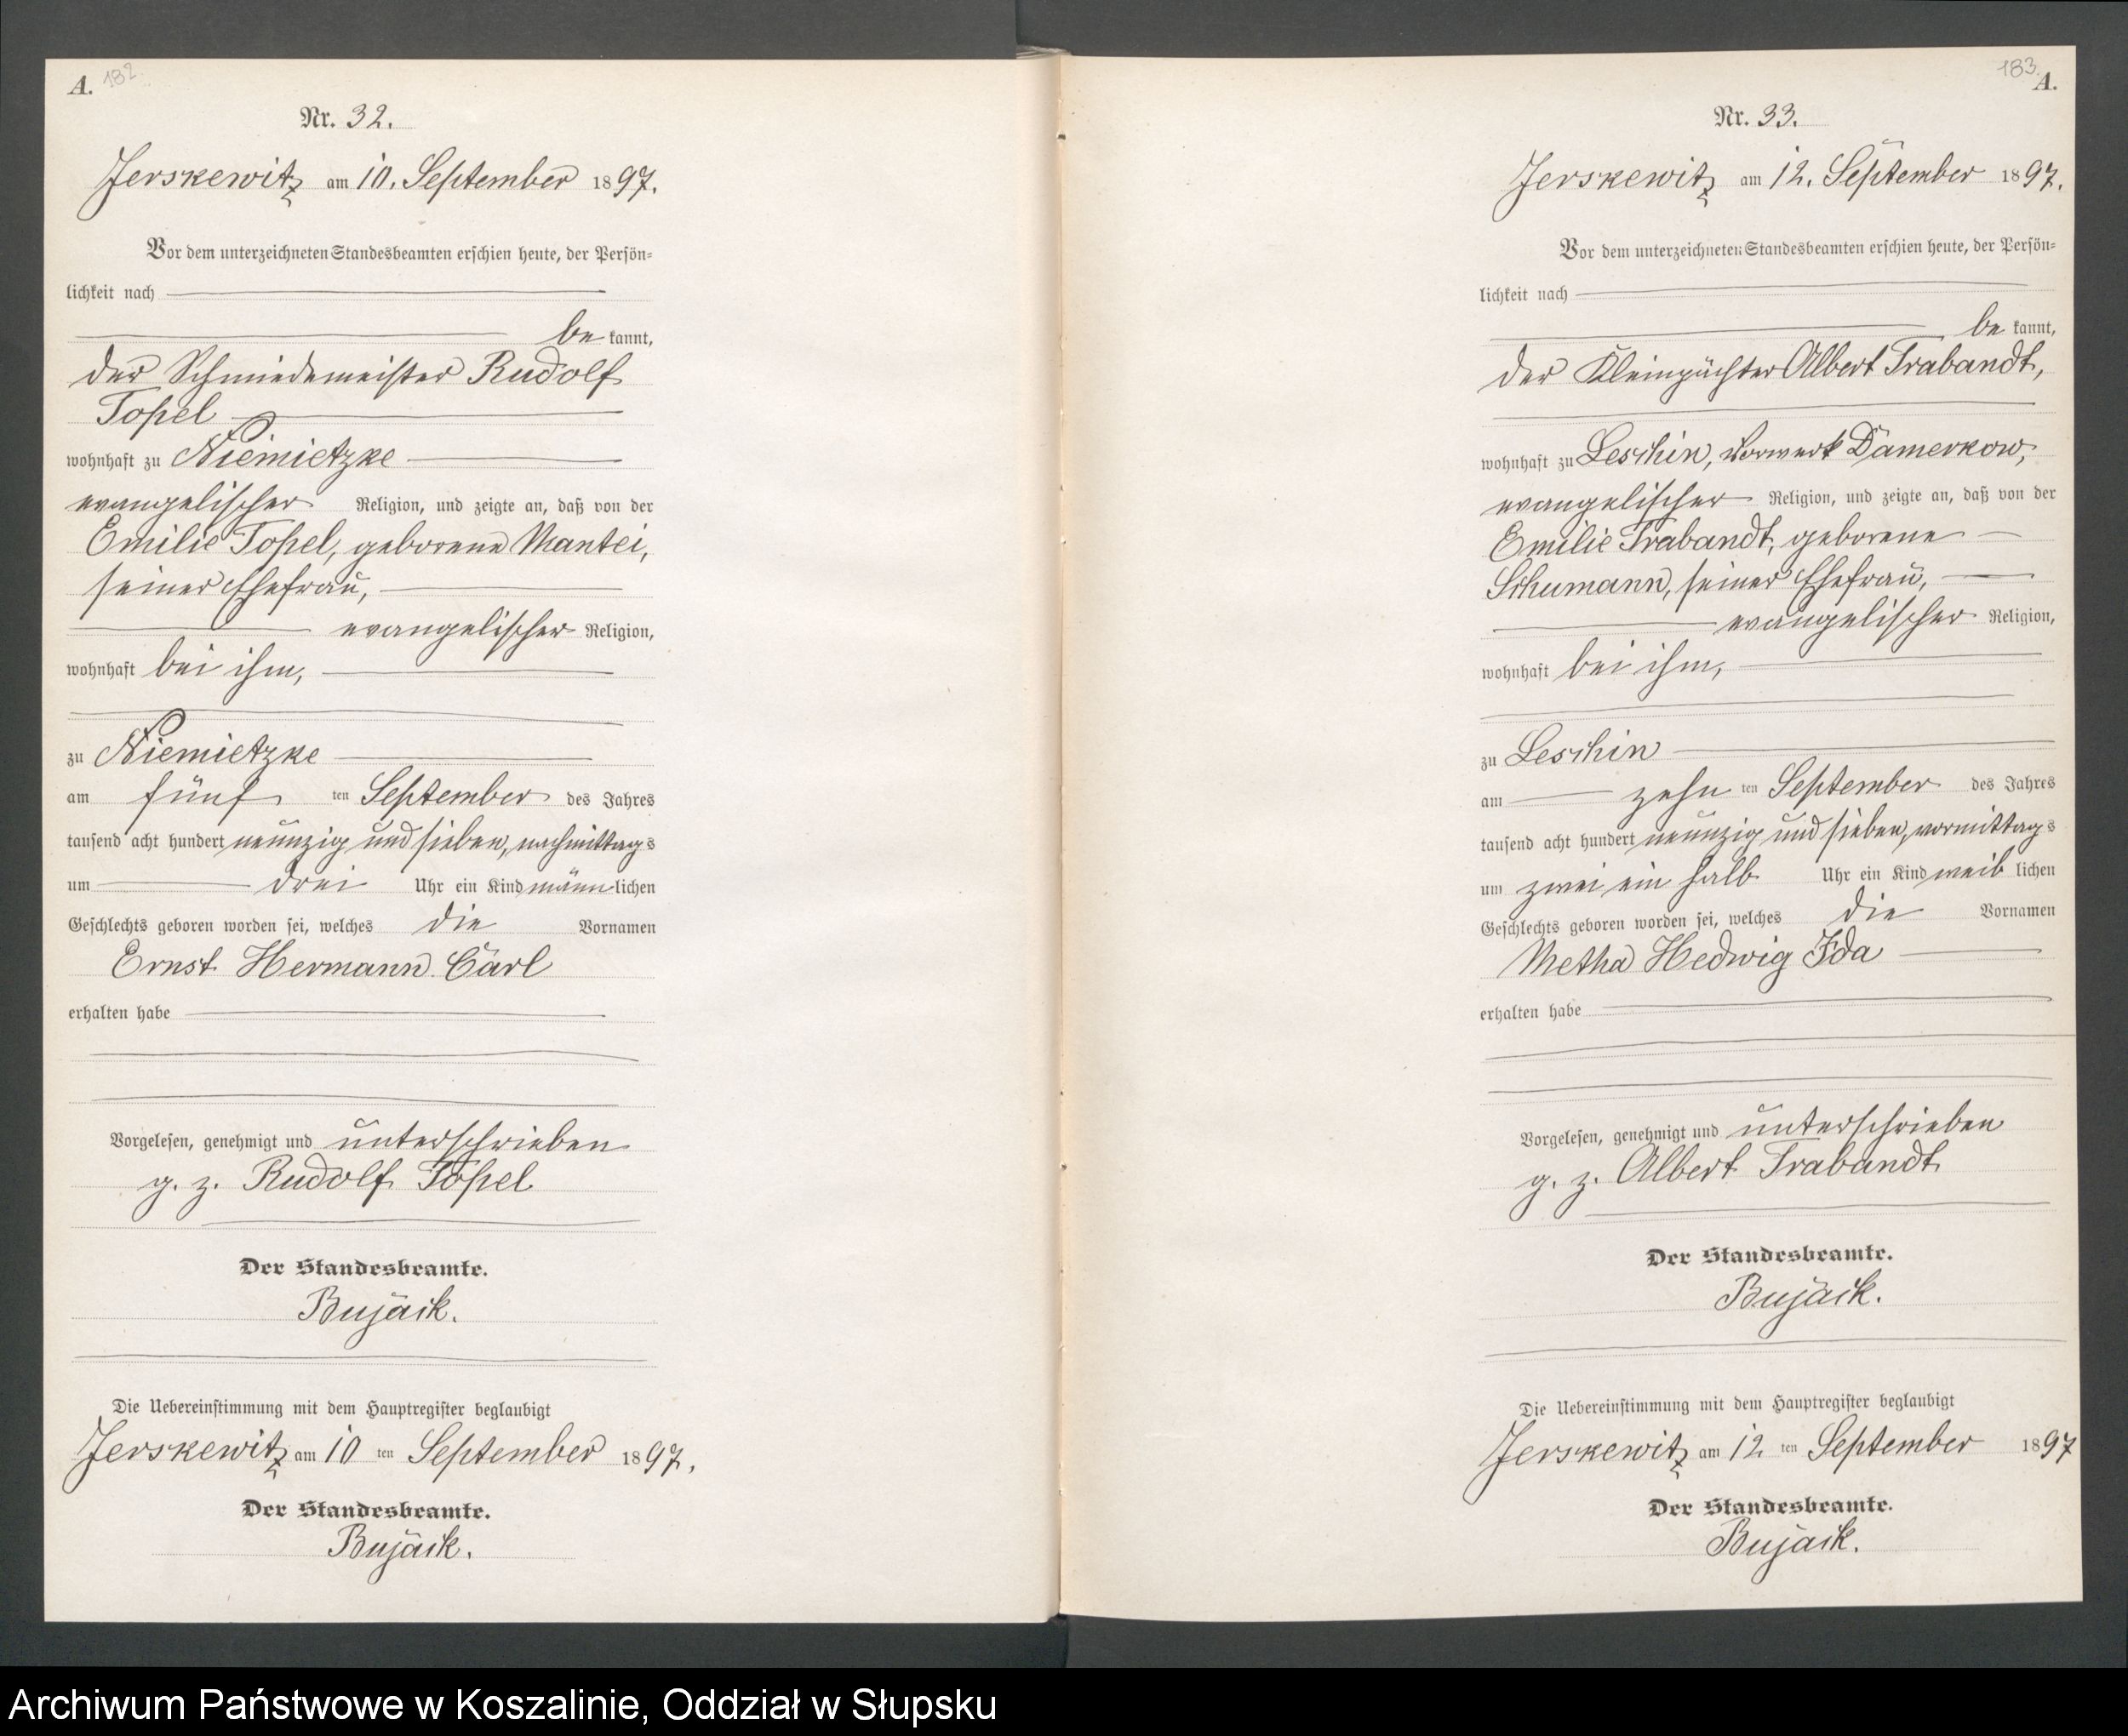 A. 182
Nr. 32.
Jerskewitz am 10. September 1897.
Vor dem unterzeichneten Standesbeamten erschien heute, der Persön-
lichkeit nach
be kannt,
der Schmiedemeister Rudolf
Topel
wohnhaft zu Niemietzke
evangelischer Religion, und zeigte an, daß von der
Emilie Topel, geborene Mantei,
seiner Ehefrau,
evangelischer Religion,
wohnhaft bei ihm,
zu Niemietzke
am fünf ten September des Jahres
tausend acht hundert neunzig und sieben, nachmittags
um drei Uhr ein Kind männlichen
Geschlechts geboren worden sei, welches die Vornamen
Ernst Hermann Carl
erhalten habe
Vorgelesen, genehmigt und unterschrieben
g. z. Rudolf Topel
Der Standesbeamte.
Bujack.
Die Uebereinstimmung mit dem Hauptregister beglaubigt
Jerskewitz am 10 ten September 1897.
Der Standesbeamte.
Bujack.
183 A.
Nr. 33.
Jerskewitz am 12. September 1897.
Vor dem unterzeichneten Standesbeamten erschien heute, der Persön-
lichkeit nach
be kannt,
der Kleinpächter Albert Trabandt,
wohnhaft zu Leschin, Vorwerk Damerkow,
evangelischer Religion, und zeigte an, daß von der
Emilie Trabandt, geborene
Schumann, seiner Ehefrau,
evangelischer Religion,
wohnhaft bei ihm,
zu Leschin
am zehn ten September des Jahres
tausend acht hundert neunzig und sieben, vormittags
um zwei ein halb Uhr ein Kind weiblichen
Geschlechts geboren worden sei, welches die Vornamen
Metha Hedwig Ida
erhalten habe
Vorgelesen, genehmigt und unterschrieben
g. z. Albert Trabandt
Der Standesbeamte.
Bujack.
Die Uebereinstimmung mit dem Hauptregister beglaubigt
Jerskewitz am 12 ten September 1897
Der Standesbeamte.
Bujack.
Archiwum Państwowe w Koszalinie, Oddział w Słupsku